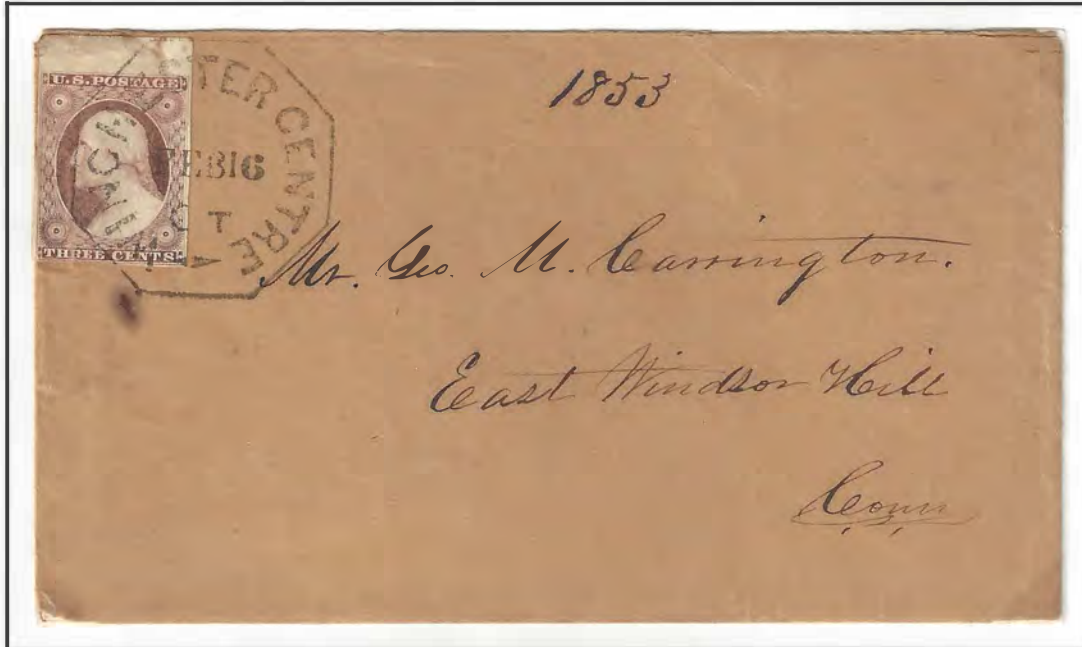 1853
U.S. POSTAGE
THREE CENTS
WINCHESTER CENTRE
FEB 16
CT
Mr. Geo. M. Carrington.
East Windsor Hill
Conn